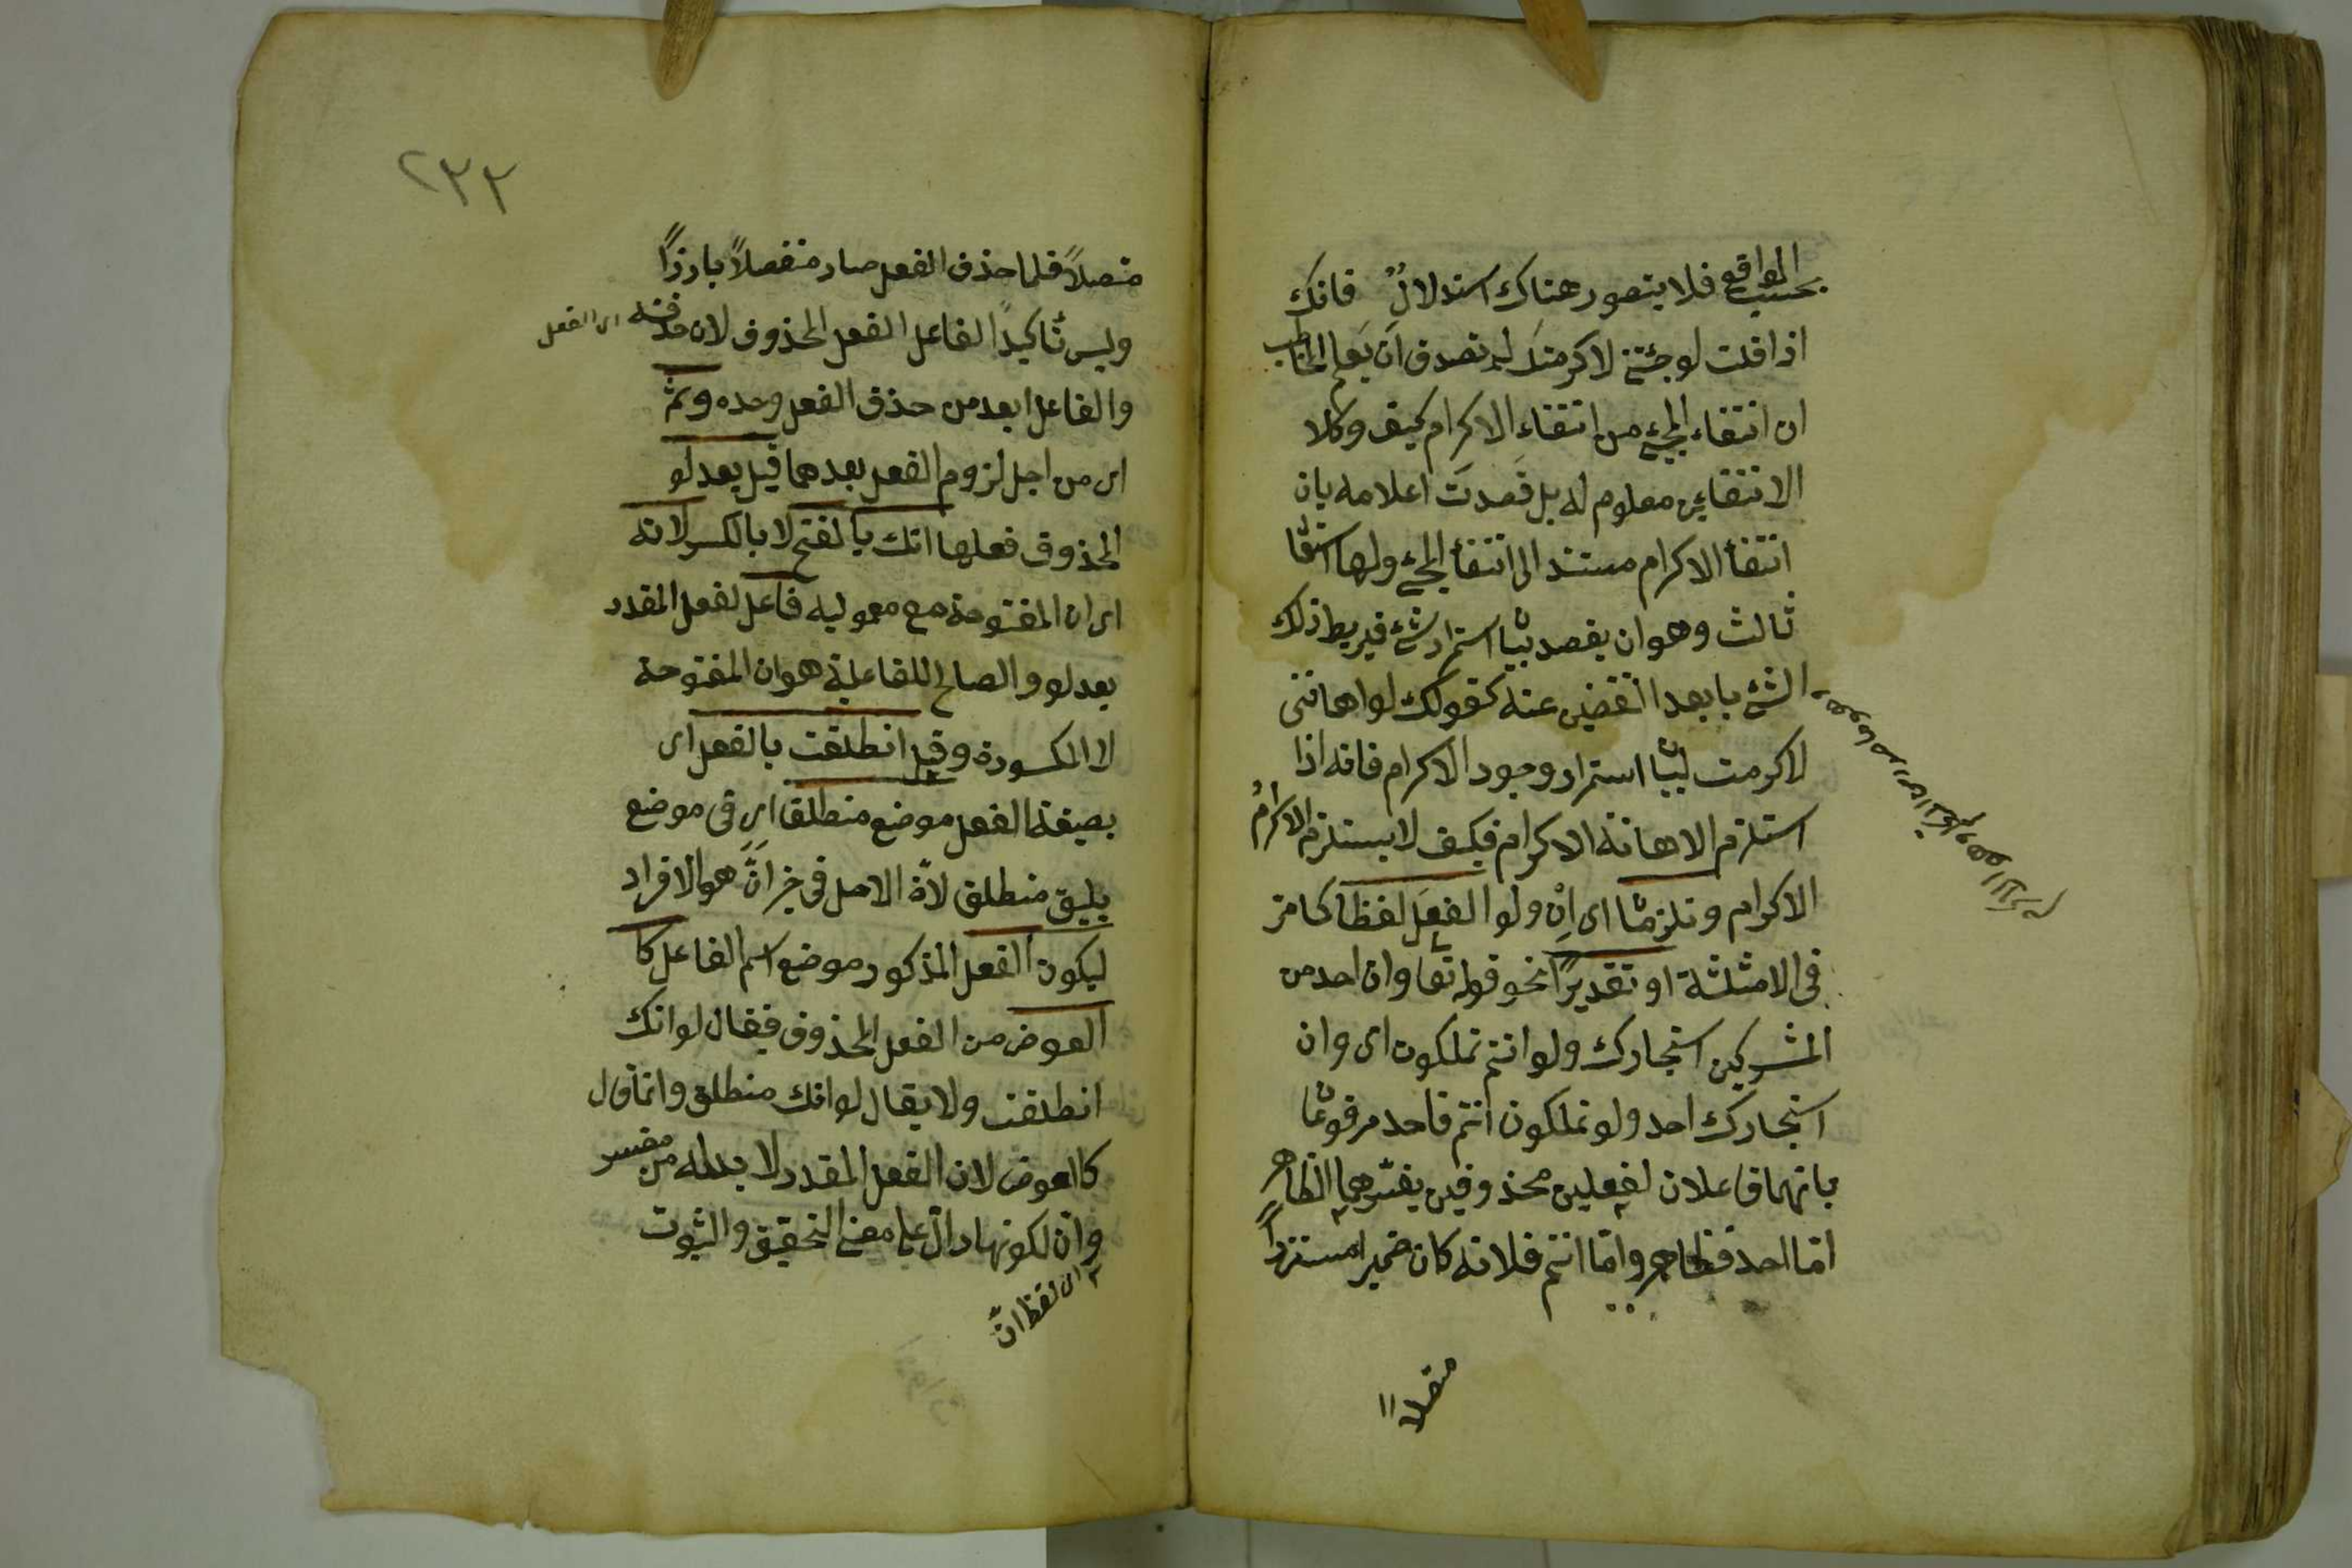 بحسب الواقع فلا يتصور هناك استدلالٌ فانك
اذا قلت لو جئتنى لاكرمتك لم تقصد ان يعلم المخاطب
ان انتفاء المجئ من انتفاء الاكرام كيف وكلا
الانتفاءين معلوم له بل قصدت اعلامه بان
انتفأ الاكرام مستند الى انتفأ المجئ ولها استعما
ثالث وهو ان يقصد بيا استمرار شئ فيربط ذلك
الشئ بابعد النقيضين عنه كقولك لو اهاننى
لاكرمت لبيا استمرار وجود الاكرام فانه اذا
استلزم الاهانة الاكرام فكيف لا يستلزم الاكرامُ
الاكرام وتلزما اى اِنْ ولو الفعل لفظا كما مر
فى الامثلثة او تقديرًا نحو قوله تعا وان احد من
المشركين استجارك ولو انتم تملكون اى وان
استجارك احد ولو تملكون انتم فاحد مرفوعا
بانهما فاعلان لفعلين محذوفين يفسرهما الظاهر
امّا احد فظاهر وامّا انتم فلانه كان ضميرا مستترًا
متصلاً
٢٣٢
متصلاً فلما حذف الفعل صار منفصلاً بارزًا
وليس تأكيدًا لفاعل الفعل المحذوف لان حذفه
اى الفعل
والفاعل ابعد من حذف الفعل وحده ومن ثم
اى من اجل لزوم الفعل بعدهما قيل بعد لو
المحذوف فعلها انك بالفتح لا بالكسر لانه
اى ان المفتوحة مع معموليه فاعل لفعل المقدر
بعد لو والصالح للفاعلية هو ان المفتوحة
لا المكسورة وقيل انطلقت بالفعل اى
بصيغة الفعل موضع منطلق اى فى موضع
يليق منطلق لانّ الاصل فى خبر انّ هو الافراد
ليكون الفعل المذكور موضع اسم الفاعل كا
العوض من الفعل المحذوف فيقال لو انك
انطلقت ولا يقال لو انك منطلق وانما قال
كالعوض لان الفعل المقدر لا بد له من مفسر
وانّ لكونها دالّ على معنى التحقيق والثبوت
اى لفظ انّ